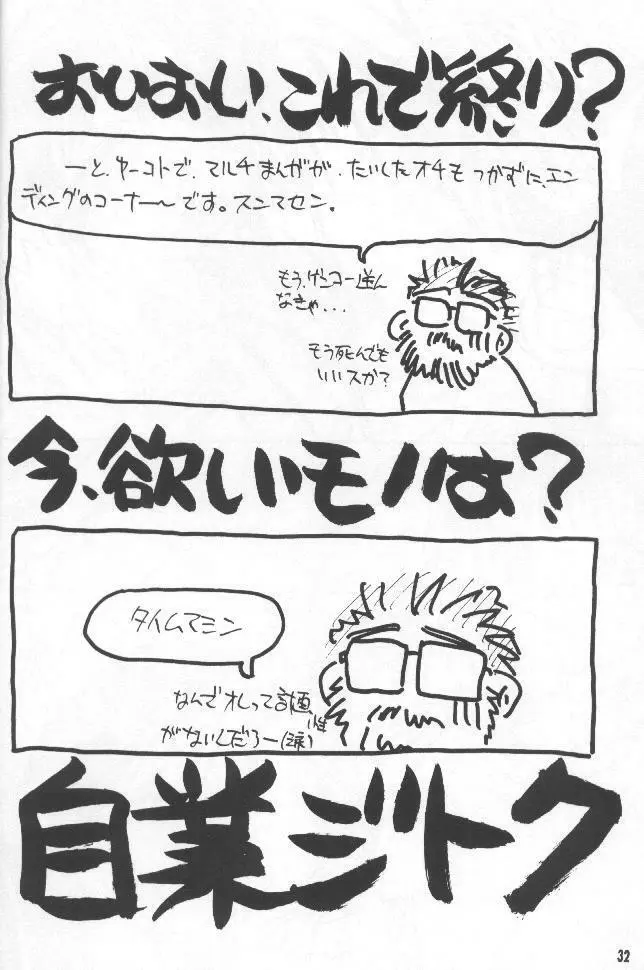 おいおい、これで終り?
ーと、ゆーコトで、マルチまんがが、たいしたオチもつかずに、エン
ディングのコーナー〜です。スンマセン。
もう、ゲンコー進ん
なきゃ...
もう死んでも
いいスか?
今、欲しいモノは?
タイムマシン
なんでオレって計画性
がないんだろー(涙)
自業ジトク
32